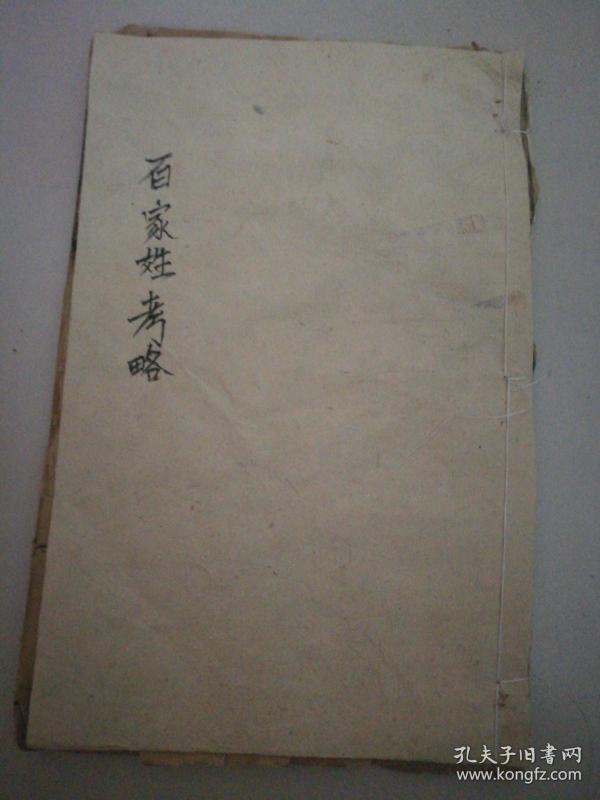 百家姓考略
孔夫子旧書网
www.kongfz.com